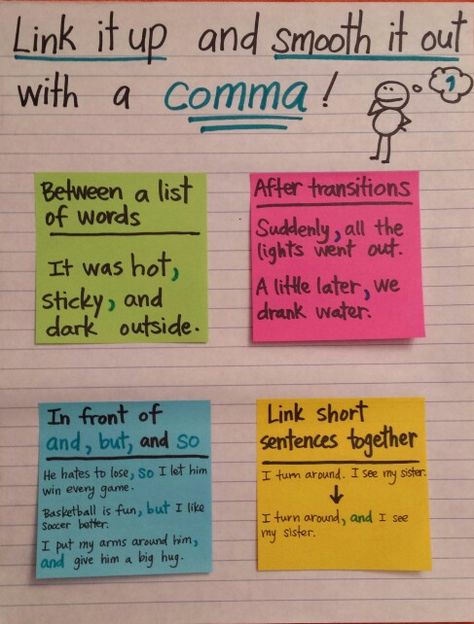 Link it up and smooth it out
with a comma!
,
Between a list
of words
It was hot,
sticky, and
dark outside.
After transitions
Suddenly, all the
lights went out.
A little later, we
drank water.
In front of
and, but, and so
He hates to lose, so I let him
win every game.
Basketball is fun, but I like
soccer better.
I put my arms around him,
and give him a big hug.
Link short
sentences together
I turn around. I see my sister.
I turn around, and I see
my sister.